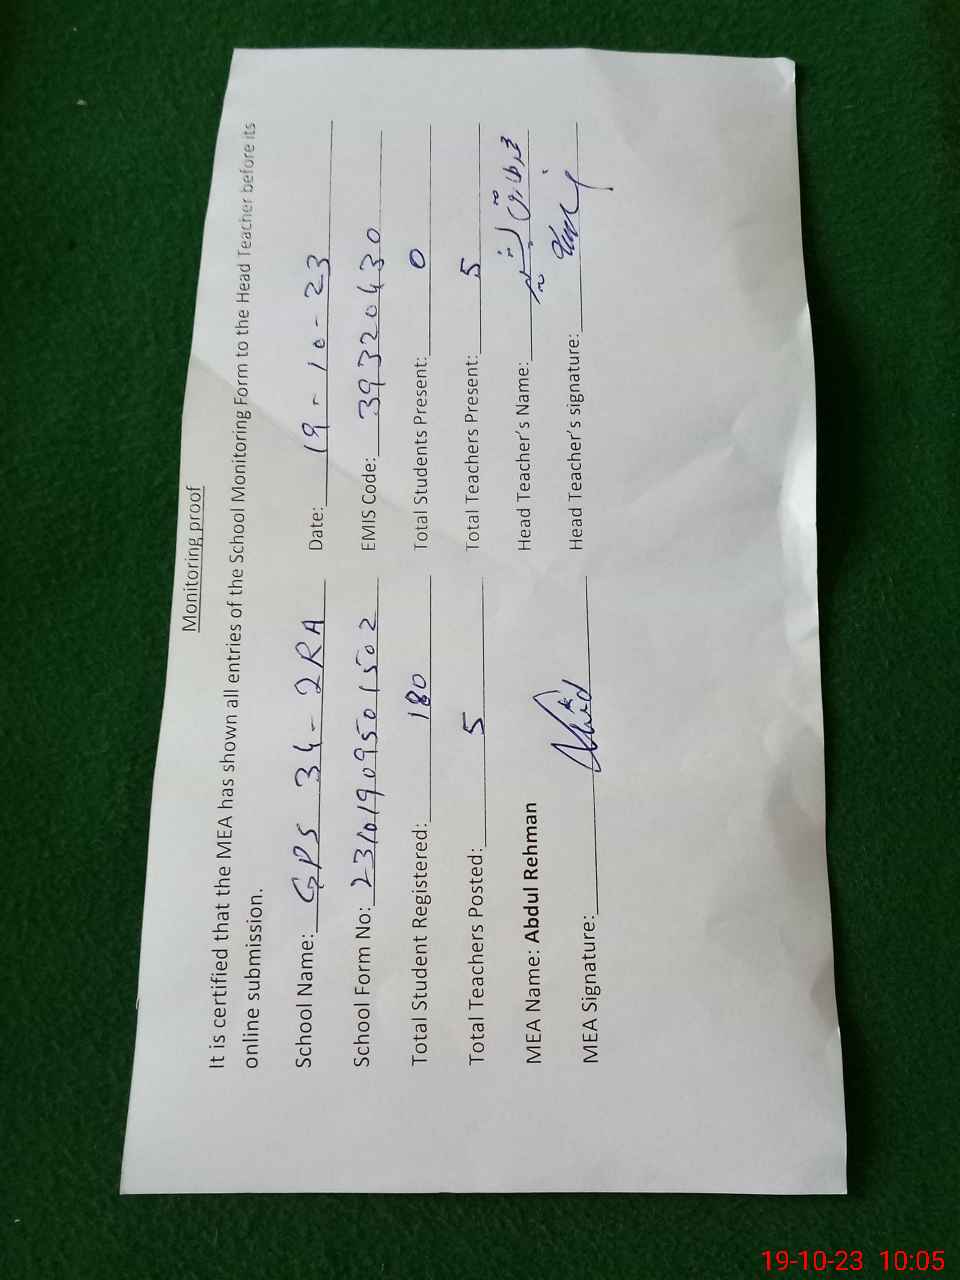 Monitoring proof
It is certified that the MEA has shown all entries of the School Monitoring Form to the Head Teacher before its
online submission.
School Name: GPS 34-2RA Date: 19-10-23
School Form No: 23101909501502 EMIS Code: 39320430
Total Student Registered: 180 Total Students Present: 0
Total Teachers Posted: 5 Total Teachers Present: 5
MEA Name: Abdul Rehman Head Teacher's Name:
MEA Signature: Head Teacher's signature:
19-10-23 10:05